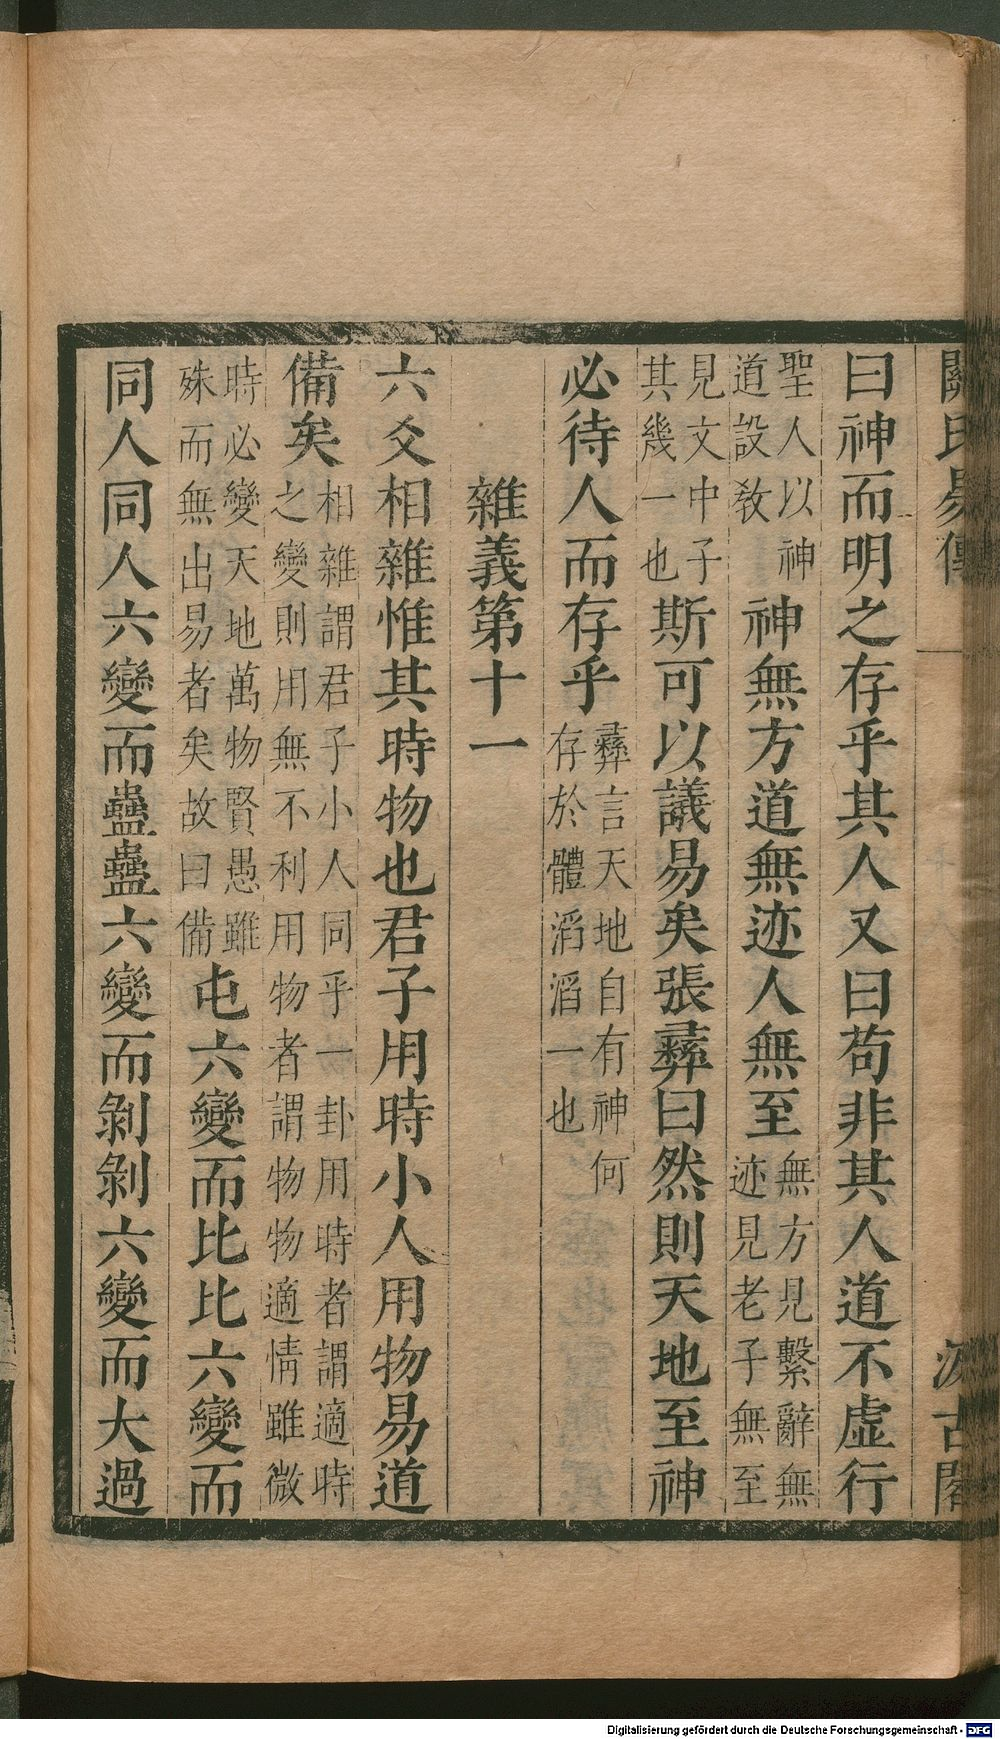 關氏易傳 一 汲古閣
曰神而明之存乎其人又曰苟非其人道不虛行
聖人以神
道設敎
神無方道無迹人無至
無方見繫辭無
迹見老子無至
見文中子
其幾一也
斯可以議易矣張彝曰然則天地至神
必待人而存乎
彝言天地自有神何
存於體滔滔一也
雜義第十一
六爻相雜惟其時物也君子用時小人用物易道
備矣
相雜謂君子小人同乎一卦用時者謂適時
之變則用無不利用物者謂物物適情雖微
時必變天地萬物賢愚雖
殊而無出易者矣故曰備
屯六變而比比六變而
同人同人六變而蠱蠱六變而剝剝六變而大過
Digitalisierung gefördert durch die Deutsche Forschungsgemeinschaft - DFG